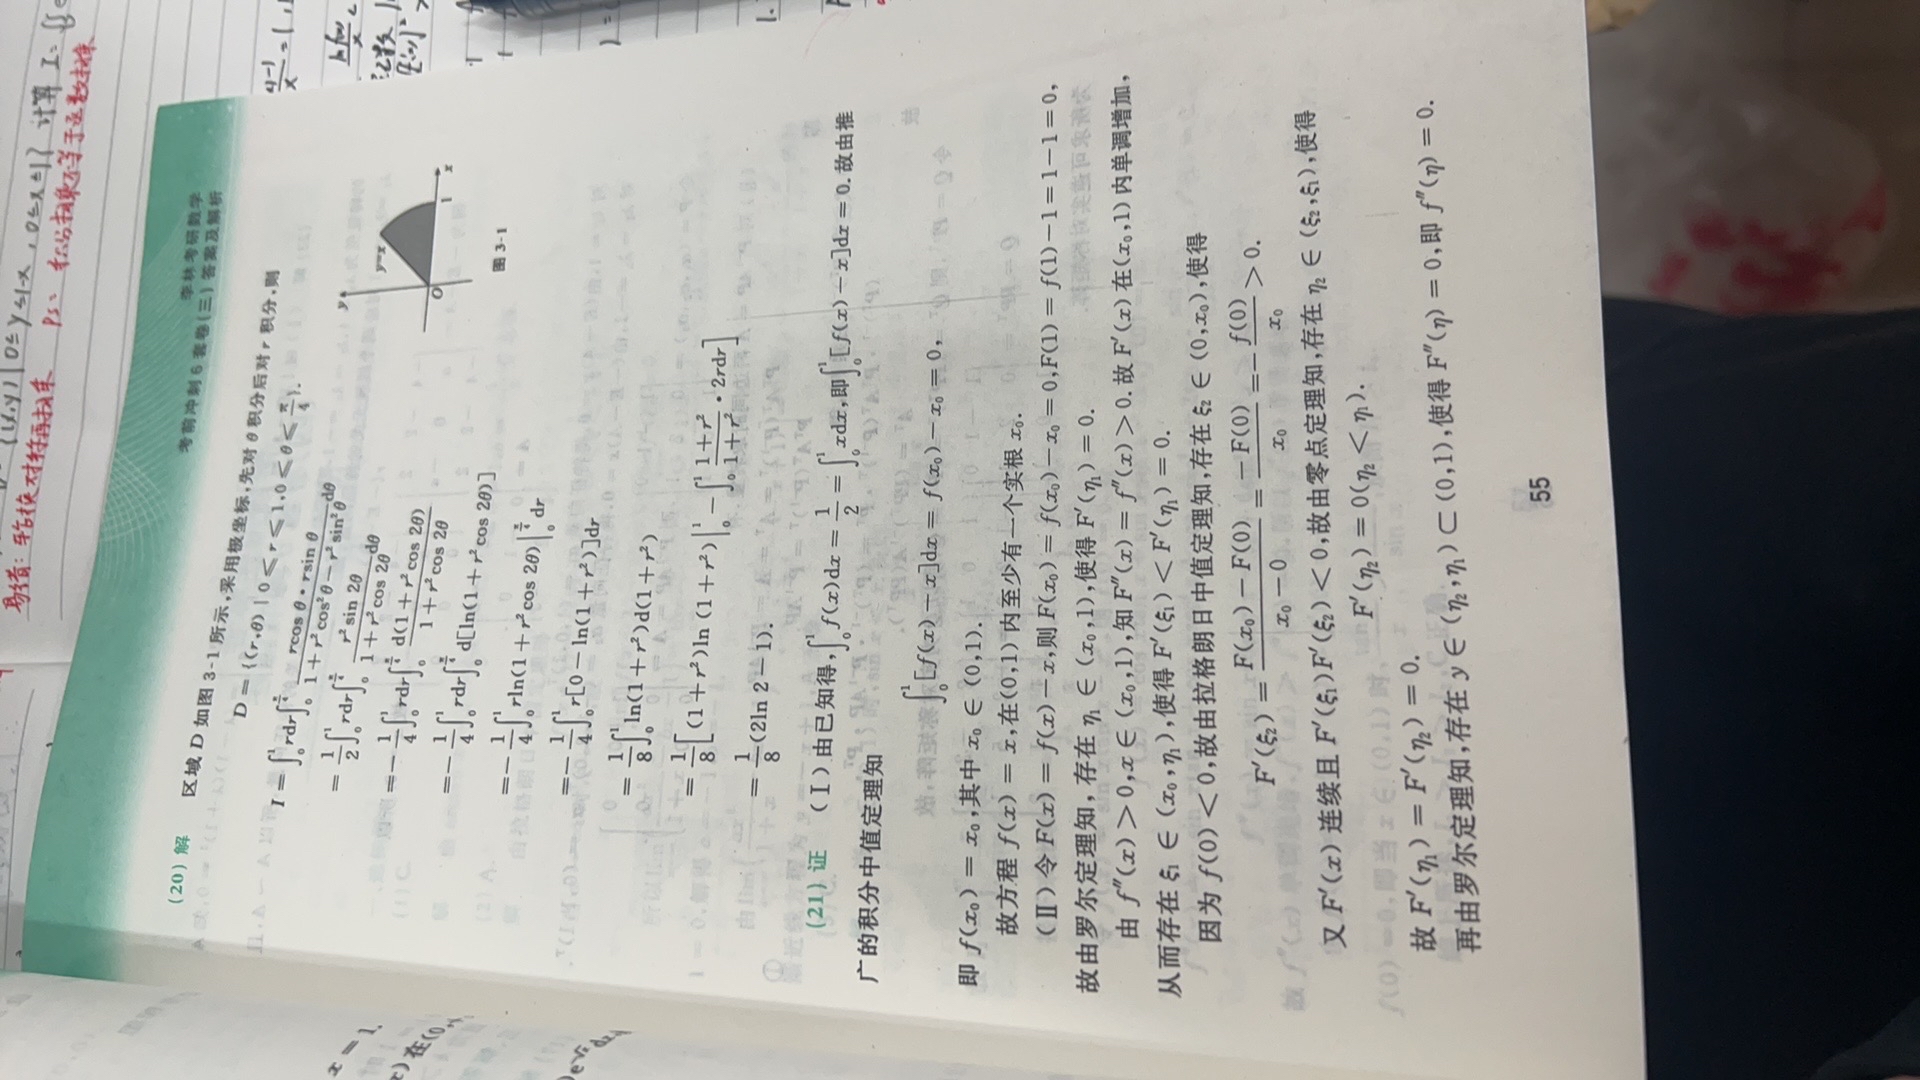 李林考研数学
考前冲刺6套卷(三)答案及解析
(20) 解 区域 D 如图 3-1 所示,采用极坐标,先对 θ 积分后对 r 积分,则
D = {(r,θ) | 0 ≤ r ≤ 1, 0 ≤ θ ≤ π/4}.
I = ∫₀¹ rdr∫₀^(π/4) (rcos θ · rsin θ)/(1 + r²cos²θ − r²sin²θ) dθ
= 1/2 ∫₀¹ rdr∫₀^(π/4) (r²sin 2θ)/(1 + r²cos 2θ) dθ
= − 1/4 ∫₀¹ rdr∫₀^(π/4) d(1 + r²cos 2θ)/(1 + r²cos 2θ)
= − 1/4 ∫₀¹ rdr∫₀^(π/4) d[ln(1 + r²cos 2θ)]
= − 1/4 ∫₀¹ rln(1 + r²cos 2θ) |₀^(π/4) dr
= − 1/4 ∫₀¹ r[0 − ln(1 + r²)]dr
= 1/8 ∫₀¹ ln(1 + r²)d(1 + r²)
= 1/8 [(1 + r²)ln (1 + r²) |₀¹ − ∫₀¹ (1 + r²)/(1 + r²) · 2rdr]
= 1/8 (2ln 2 − 1).
y
y=x
O
1
x
图 3-1
(21) 证 (Ⅰ) 由已知得, ∫₀¹ f(x)dx = 1/2 = ∫₀¹ xdx, 即 ∫₀¹ [f(x) − x]dx = 0. 故由推
广的积分中值定理知
∫₀¹ [f(x) − x]dx = f(x₀) − x₀ = 0,
即 f(x₀) = x₀, 其中 x₀ ∈ (0,1).
故方程 f(x) = x, 在(0,1) 内至少有一个实根 x₀.
(Ⅱ) 令 F(x) = f(x) − x, 则 F(x₀) = f(x₀) − x₀ = 0, F(1) = f(1) − 1 = 1 − 1 = 0,
故由罗尔定理知,存在 η₁ ∈ (x₀,1), 使得 F′(η₁) = 0.
由 f″(x) > 0, x ∈ (x₀,1), 知 F″(x) = f″(x) > 0. 故 F′(x) 在(x₀,1) 内单调增加,
从而存在 ξ₁ ∈ (x₀,η₁), 使得 F′(ξ₁) < F′(η₁) = 0.
因为 f(0) < 0, 故由拉格朗日中值定理知,存在 ξ₂ ∈ (0,x₀), 使得
F′(ξ₂) = (F(x₀) − F(0))/(x₀ − 0) = (− F(0))/x₀ = − f(0)/x₀ > 0.
又 F′(x) 连续且 F′(ξ₁)F′(ξ₂) < 0, 故由零点定理知,存在 η₂ ∈ (ξ₂,ξ₁), 使得
F′(η₂) = 0(η₂ < η₁).
故 F′(η₁) = F′(η₂) = 0.
再由罗尔定理知,存在 y ∈ (η₂,η₁) ⊂ (0,1), 使得 F″(η) = 0, 即 f″(η) = 0.
55